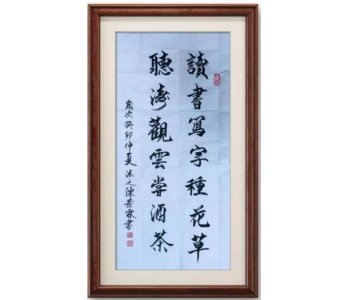 讀書寫字種花草
聽濤觀雲嘗酒茶
歲次癸卯仲夏之陳霖書